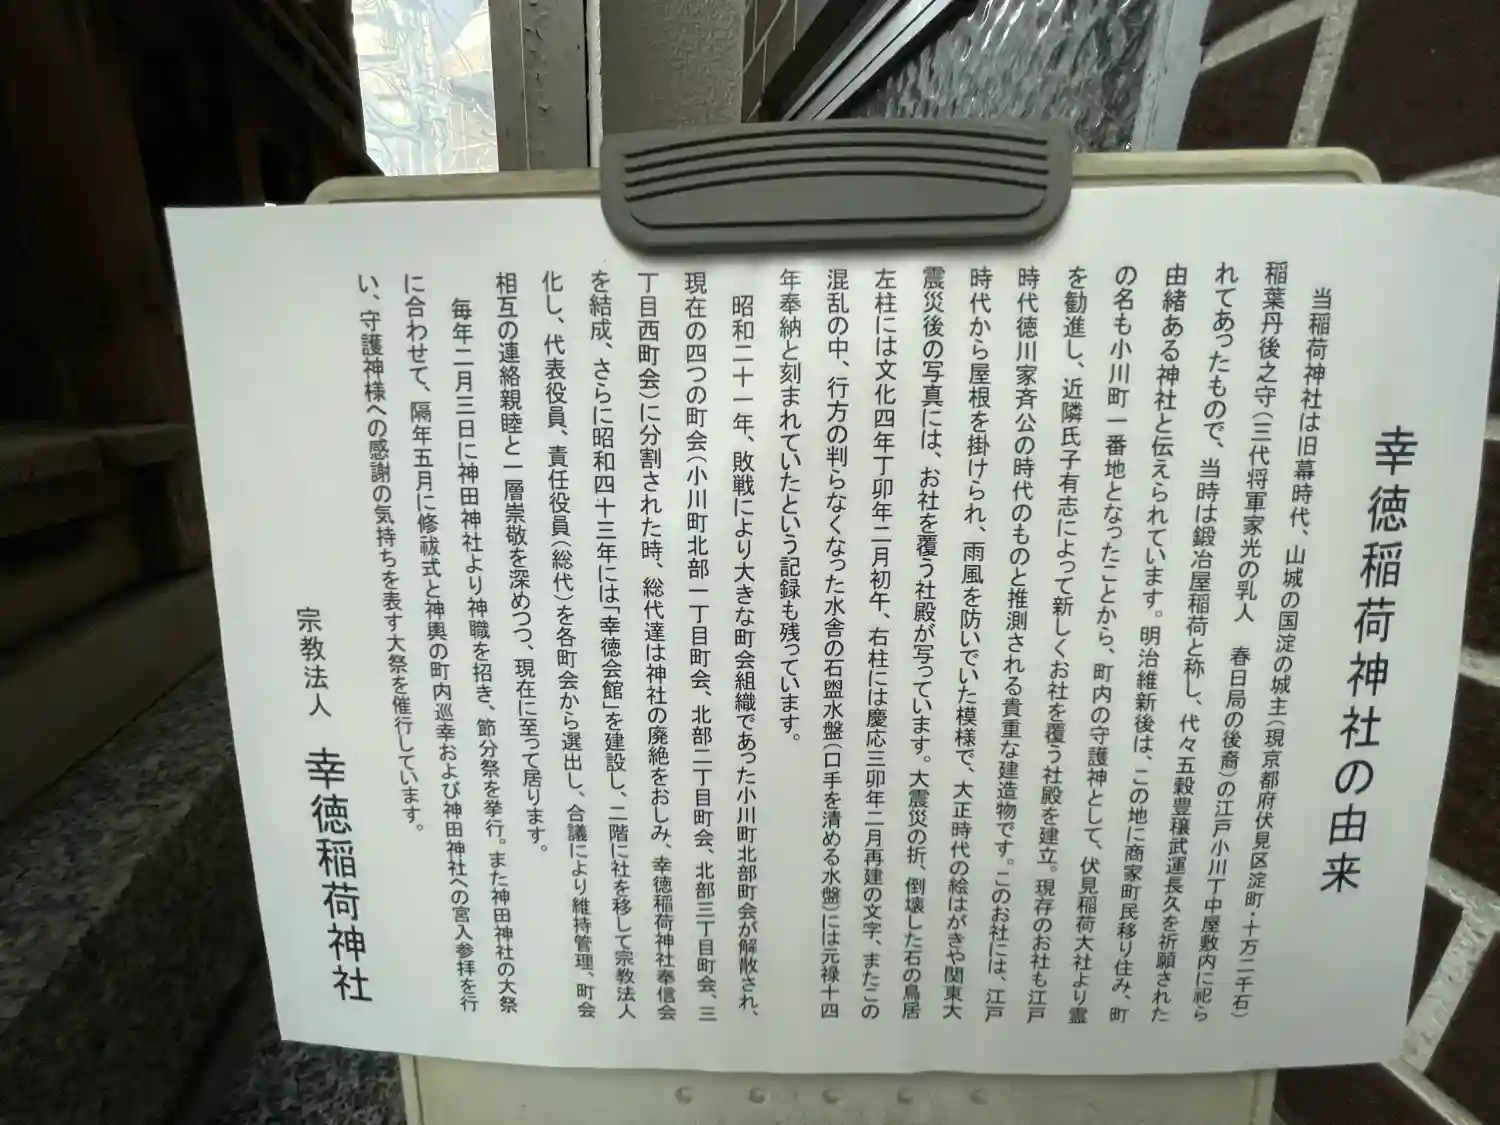 幸徳稲荷神社の由来
当稲荷神社は旧幕時代、山城の国淀の城主(現京都府伏見区淀町・十万二千石)
稲葉丹後之守(三代将軍家光の乳人　春日局の後裔)の江戸小川丁中屋敷内に祀ら
れてあったもので、当時は鍛冶屋稲荷と称し、代々五穀豊穣武運長久を祈願された
由緒ある神社と伝えられています。明治維新後は、この地に商家町民移り住み、町
の名も小川町一番地となったことから、町内の守護神として、伏見稲荷大社より霊
を勧進し、近隣氏子有志によって新しくお社を覆う社殿を建立。現存のお社も江戸
時代徳川家斉公の時代のものと推測される貴重な建造物です。このお社には、江戸
時代から屋根を掛けられ、雨風を防いでいた模様で、大正時代の絵はがきや関東大
震災後の写真には、お社を覆う社殿が写っています。大震災の折、倒壊した石の鳥居
左柱には文化四年丁卯年二月初午、右柱には慶応三卯年二月再建の文字、またこの
混乱の中、行方の判らなくなった水舎の石盥水盤(口手を清める水盤)には元禄十四
年奉納と刻まれていたという記録も残っています。
昭和二十一年、敗戦により大きな町会組織であった小川町北部町会が解散され、
現在の四つの町会(小川町北部一丁目町会、北部二丁目町会、北部三丁目町会、三
丁目西町会)に分割された時、総代達は神社の廃絶をおしみ、幸徳稲荷神社奉信会
を結成、さらに昭和四十三年には「幸徳会館」を建設し、二階に社を移して宗教法人
化し、代表役員、責任役員(総代)を各町会から選出し、合議により維持管理、町会
相互の連絡親睦と一層崇敬を深めつつ、現在に至って居ります。
毎年二月三日に神田神社より神職を招き、節分祭を挙行。また神田神社の大祭
に合わせて、隔年五月に修祓式と神輿の町内巡幸および神田神社への宮入参拝を行
い、守護神様への感謝の気持ちを表す大祭を催行しています。
宗教法人　幸徳稲荷神社